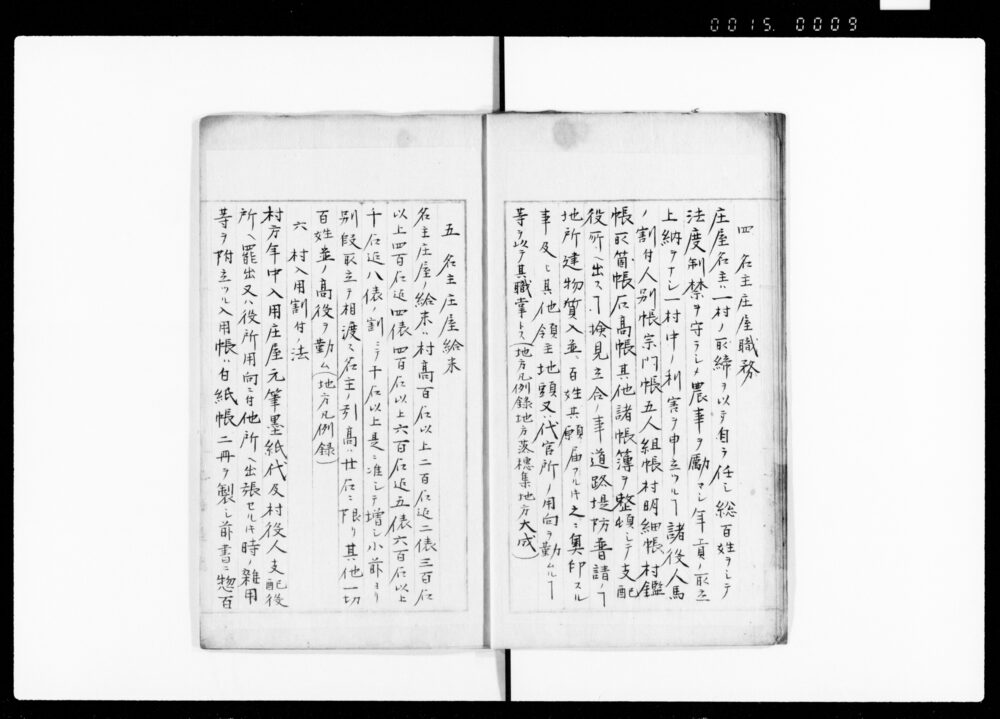 0015. 0009
四 名主庄屋職務
庄屋名主ハ一村ノ取締ヲ以テ自ラ任シ総百姓ヲシテ
法度制禁ヲ守ラシメ農事ヲ励マシ年貢ノ取立
上納ヲナシ一村中ノ利害ヲ申立ツルヿ諸役人馬
ノ割付人別帳宗門帳五人組帳村明細帳村鑑
帳取箇帳石高帳其他諸帳簿ヲ整頓シテ支配
役所ヘ出スヿ検見立会ノ事道路堤防普請ノヿ
地所建物質入並ニ百姓其願届アルトキ之ニ奥印スル
事及ヒ其他領主地頭又ハ代官所ノ用向ヲ勤ムルヿ
等ヲ以テ其職掌トス(地方凡例録地方落穂集地方大成)
五 名主庄屋給米
名主庄屋ノ給米ハ村高百石以上二百石迄二俵三百石
以上四百石迄四俵四百石以上六百石迄五俵六百石以上
千石迄八俵ノ割ニテ千石以上是ニ准シテ増シ小前ヨリ
別段取立テ相渡ス名主ノ引高ハ廿石ニ限リ其他一切
百姓並ノ高役ヲ勤ム(地方凡例録)
六 村入用割付ノ法
村方年中入用庄屋元筆墨紙代及村役人支配役
所ヘ罷出又ハ役所用向ニ付他所ヘ出張セルトキ時ノ雑用
等ヲ附立ツル入用帳ハ白紙帳二冊ヲ製シ前書ニ惣百